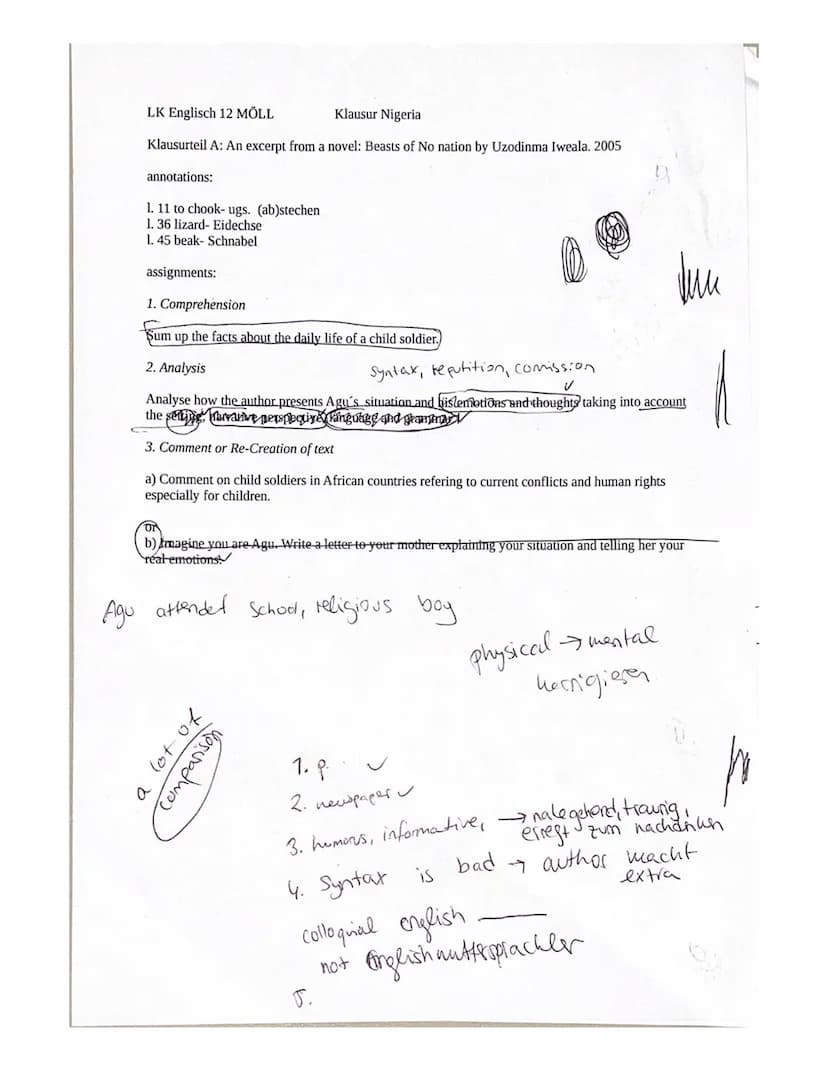 LK Englisch 12 MÖLL Klausur Nigeria
Klausurteil A: An excerpt from a novel: Beasts of No nation by Uzodinma Iweala. 2005
annotations:
l. 11 to chook- ugs. (ab)stechen
l. 36 lizard- Eidechse
l. 45 beak- Schnabel
assignments:
1. Comprehension
Sum up the facts about the daily life of a child soldier.
2. Analysis
syntax, reputition, comission
Analyse how the author presents Agu´s situation and his emotions and thoughts taking into account
the setting, narrative perspective, language and grammar
3. Comment or Re-Creation of text
a) Comment on child soldiers in African countries refering to current conflicts and human rights
especially for children.
or
b) Imagine you are Agu. Write a letter to your mother explaining your situation and telling her your
real emotions.
Agu attended school, religious boy
physical → mental
a lot of
comparison
1. p. ✓
2. newspaper ✓
3. humorus, informative, → nalegehend, traurig,
erregt zum nachdenken
4. Syntax is bad → author macht
extra
colloquial english
not Englishmuttersprachler
5.